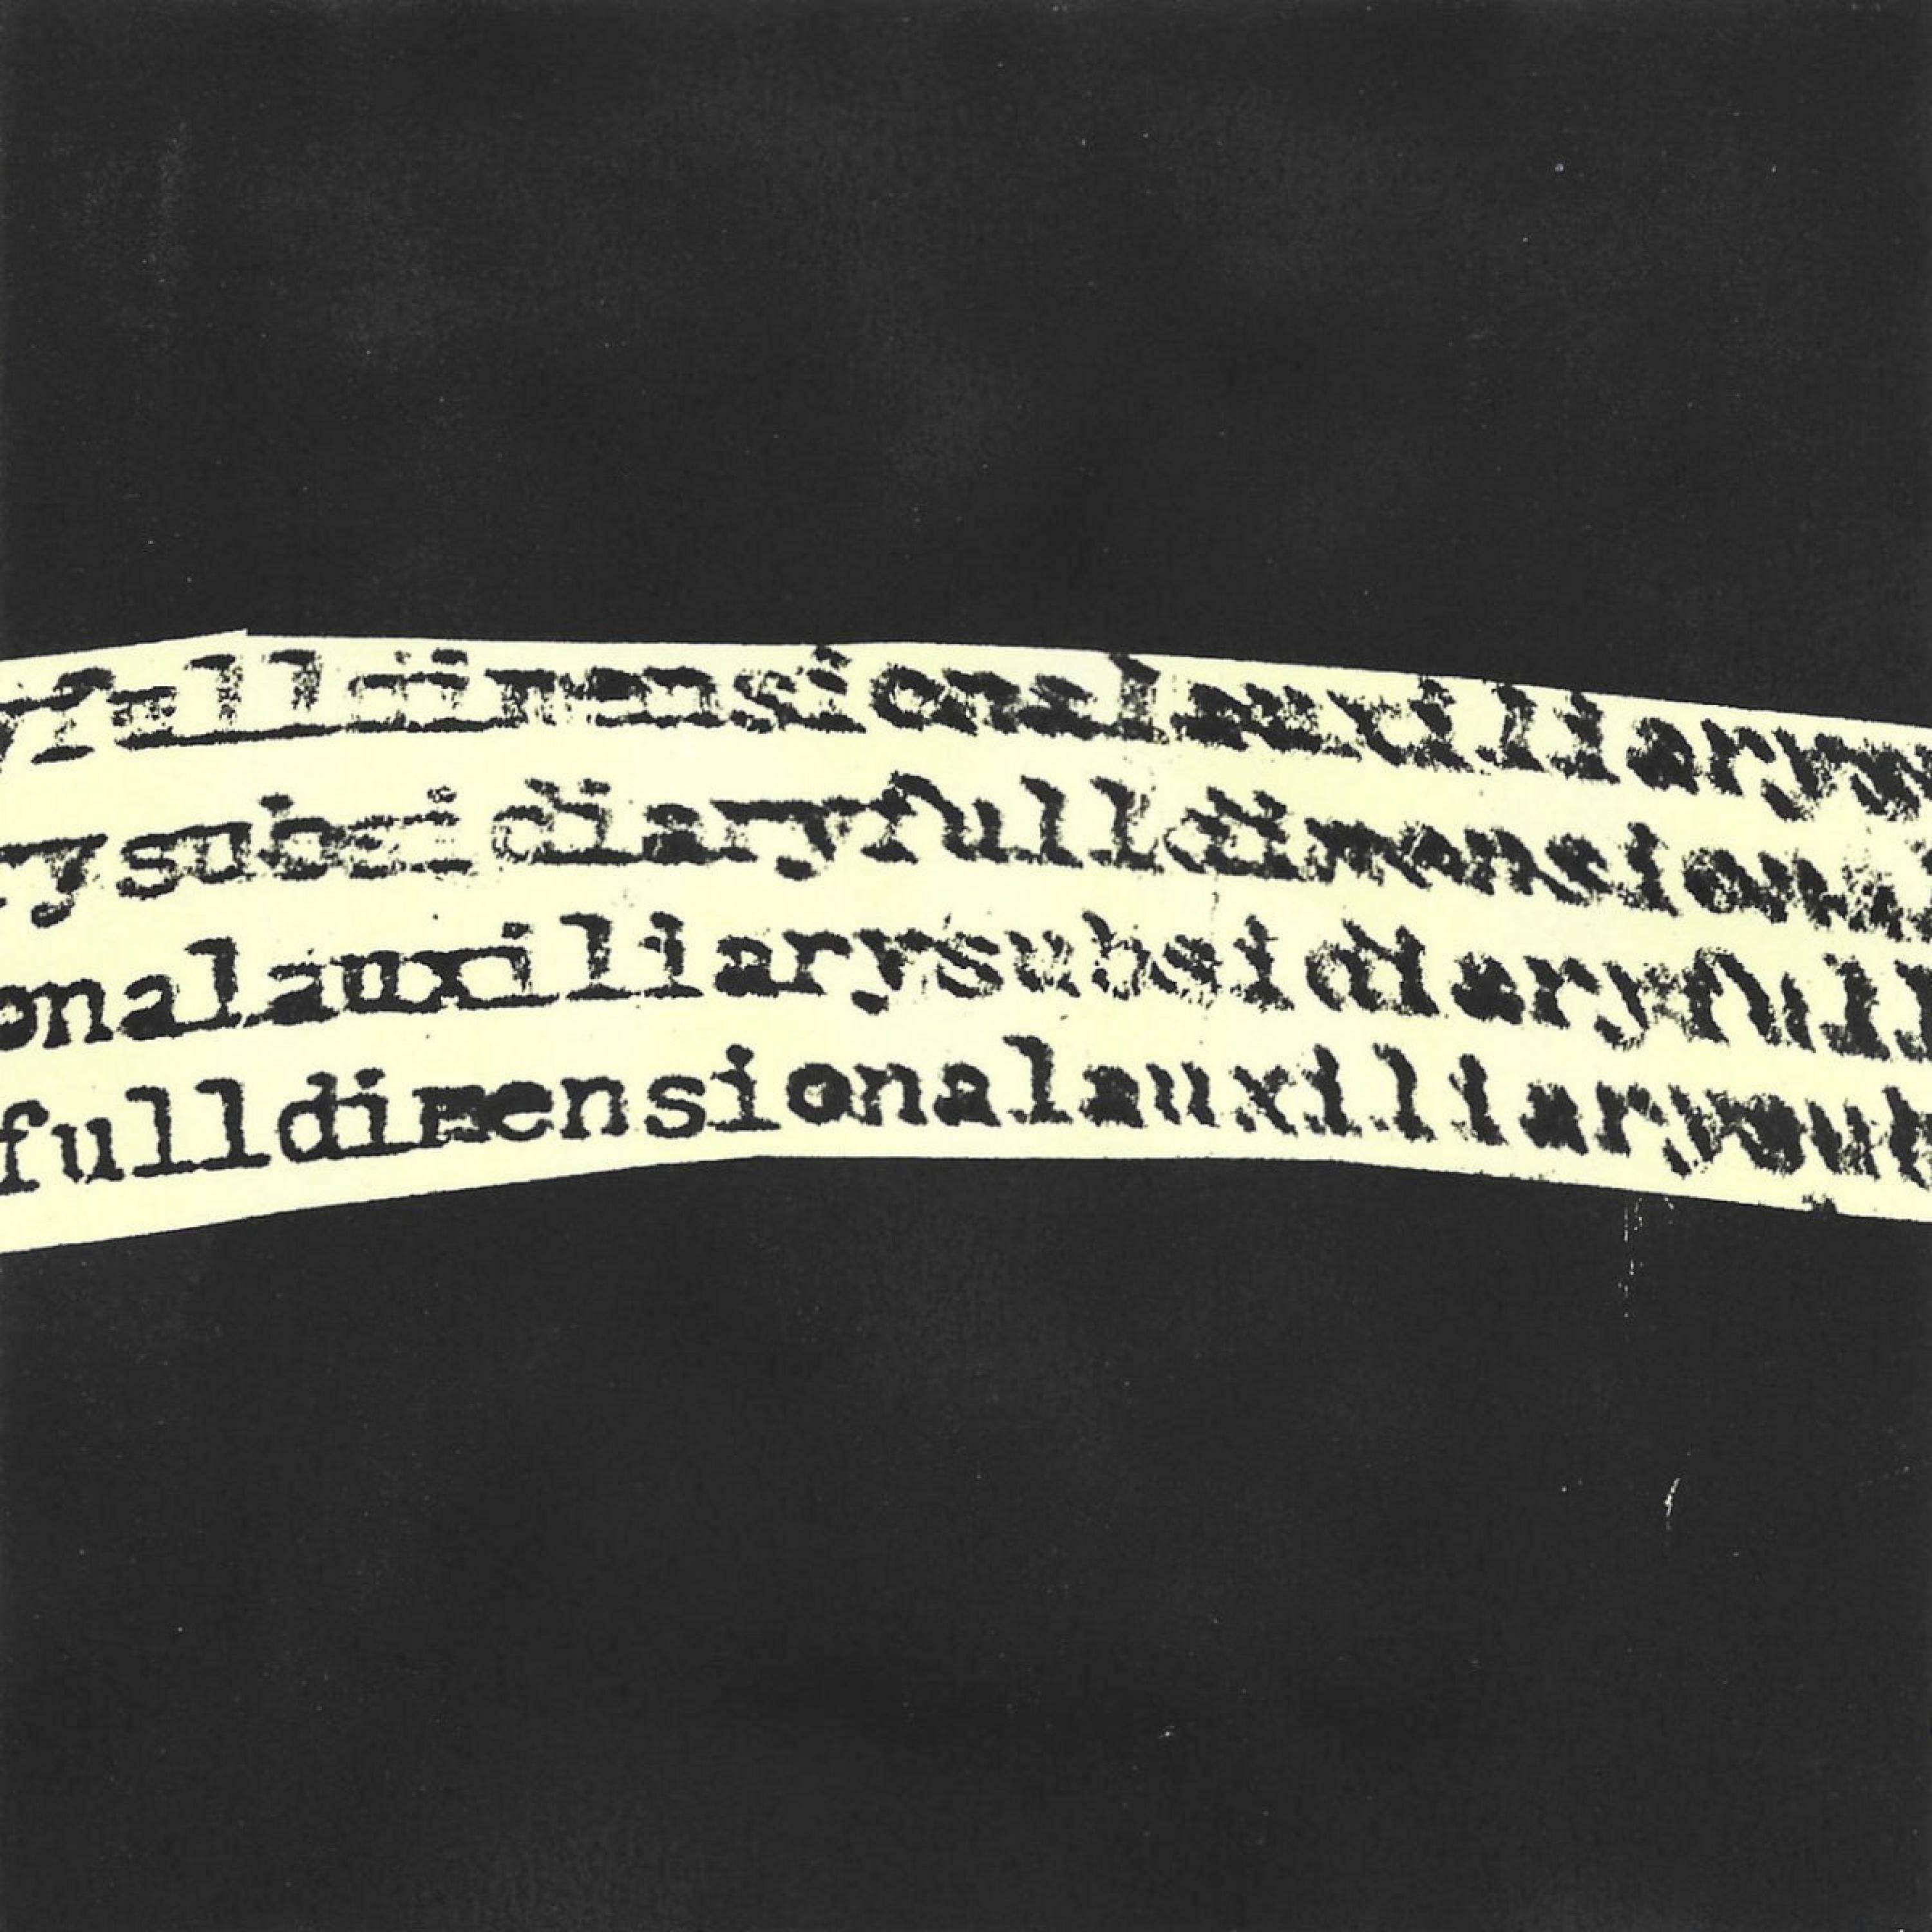 yfulldimensionalauxiliarys
rysubsidiaryfulldimension
onalauxiliarysubsidiaryfull
fulldimensionalauxiliarysub